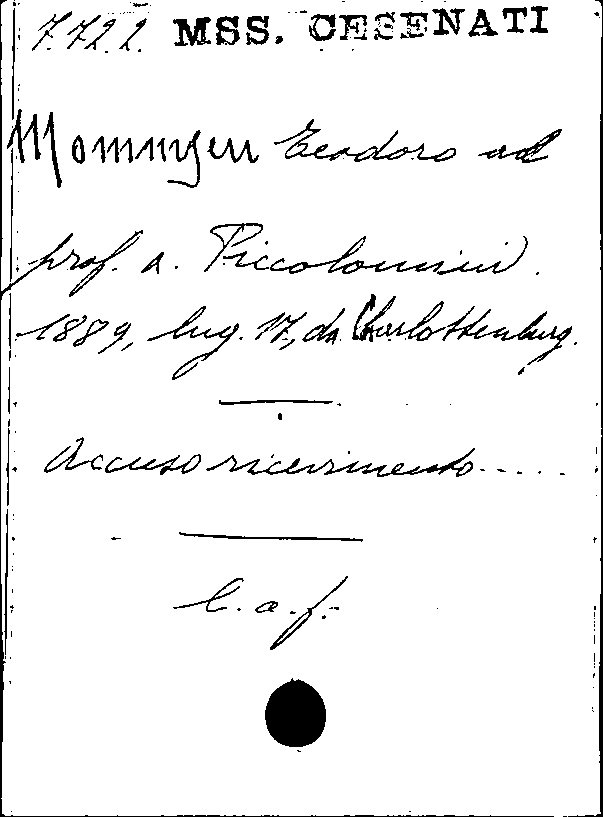 7.72.2. MSS. CESENATI
Mommsen Teodoro al
prof. A. Piccolomini.
1889, lug. 17, da Charlottenburg.
Accuso ricevimento.....
l. a. f.